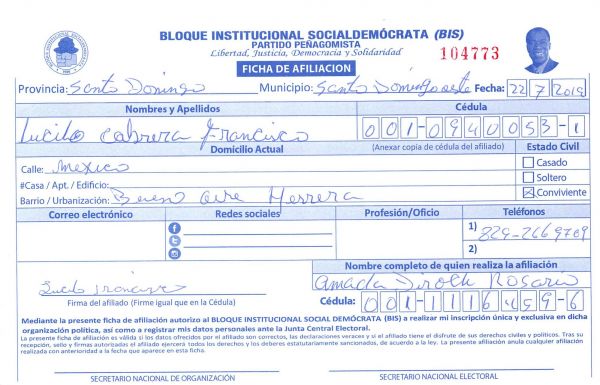 BLOQUE INSTITUCIONAL SOCIALDEMÓCRATA (BIS)
PARTIDO PEÑAGOMISTA
Libertad, Justicia, Democracia y Solidaridad
104773
FICHA DE AFILIACION
Provincia: Santo Domingo Municipio: Santo Domingo oeste Fecha: 22 7 2019
Nombres y Apellidos Cédula
Lucilo Cabrera Francisco 001-0940053-1
Domicilio Actual (Anexar copia de cédula del afiliado) Estado Civil
Calle: Mexico Casado
#Casa / Apt. / Edificio: Soltero
Barrio / Urbanización: Buen Aire Herrera Conviviente
Correo electrónico Redes sociales Profesión/Oficio Teléfonos
1) 829-266 9709
2)
Nombre completo de quien realiza la afiliación
Amada Rosario
Firma del afiliado (Firme igual que en la Cédula) Cédula: 001-1116459-6
Mediante la presente ficha de afiliación autorizo al BLOQUE INSTITUCIONAL SOCIAL DEMÓCRATA (BIS) a realizar mi inscripción única y exclusiva en dicha
organización política, así como a registrar mis datos personales ante la Junta Central Electoral.
La presente ficha de afiliación es válida si los datos ofrecidos por el afiliado son correctos, las declaraciones veraces y si el afiliado tiene el disfrute de sus derechos civiles y políticos. Tras su
recepción, sello y firmas autorizadas el afiliado ejercerá todos los derechos y los deberes estatutariamente sancionados, de acuerdo a la ley. La presente afiliación anula cualquier afiliación
realizada con anterioridad a la fecha que aparece en esta ficha.
SECRETARIO NACIONAL DE ORGANIZACIÓN SECRETARIO NACIONAL ELECTORAL